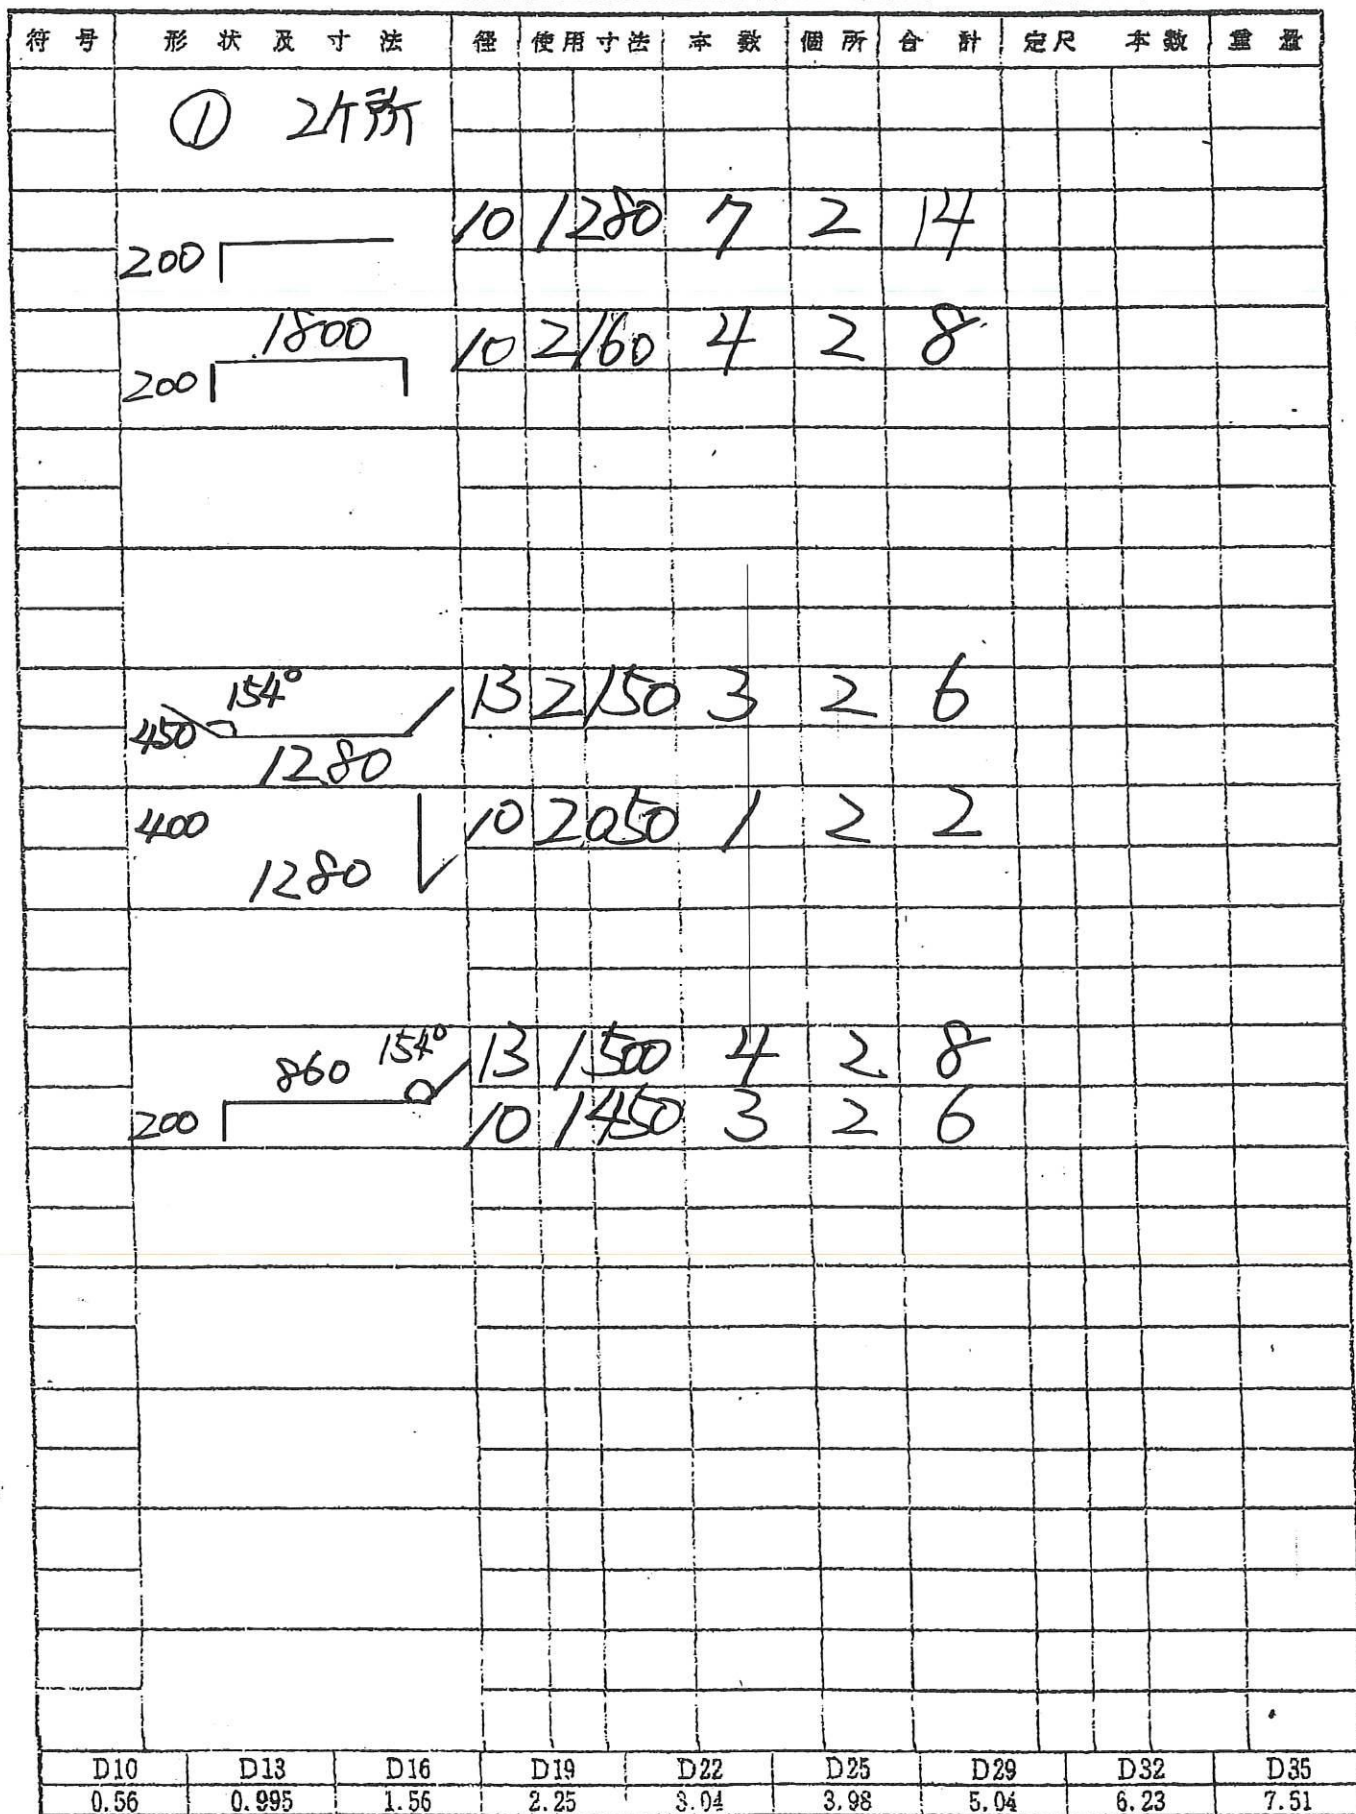 符号 形状及寸法 径 使用寸法 本数 個所 合計 定尺 本数 重量
① 2ケ所
10 1280 7 2 14
200
1800 10 2160 4 2 8
200
154° 13 2150 3 2 6
450
1280
400 10 2050 1 2 2
1280
860 154° 13 1500 4 2 8
200 10 1450 3 2 6
D10 D13 D16 D19 D22 D25 D29 D32 D35
0.56 0.995 1.56 2.25 3.04 3.98 5.04 6.23 7.51